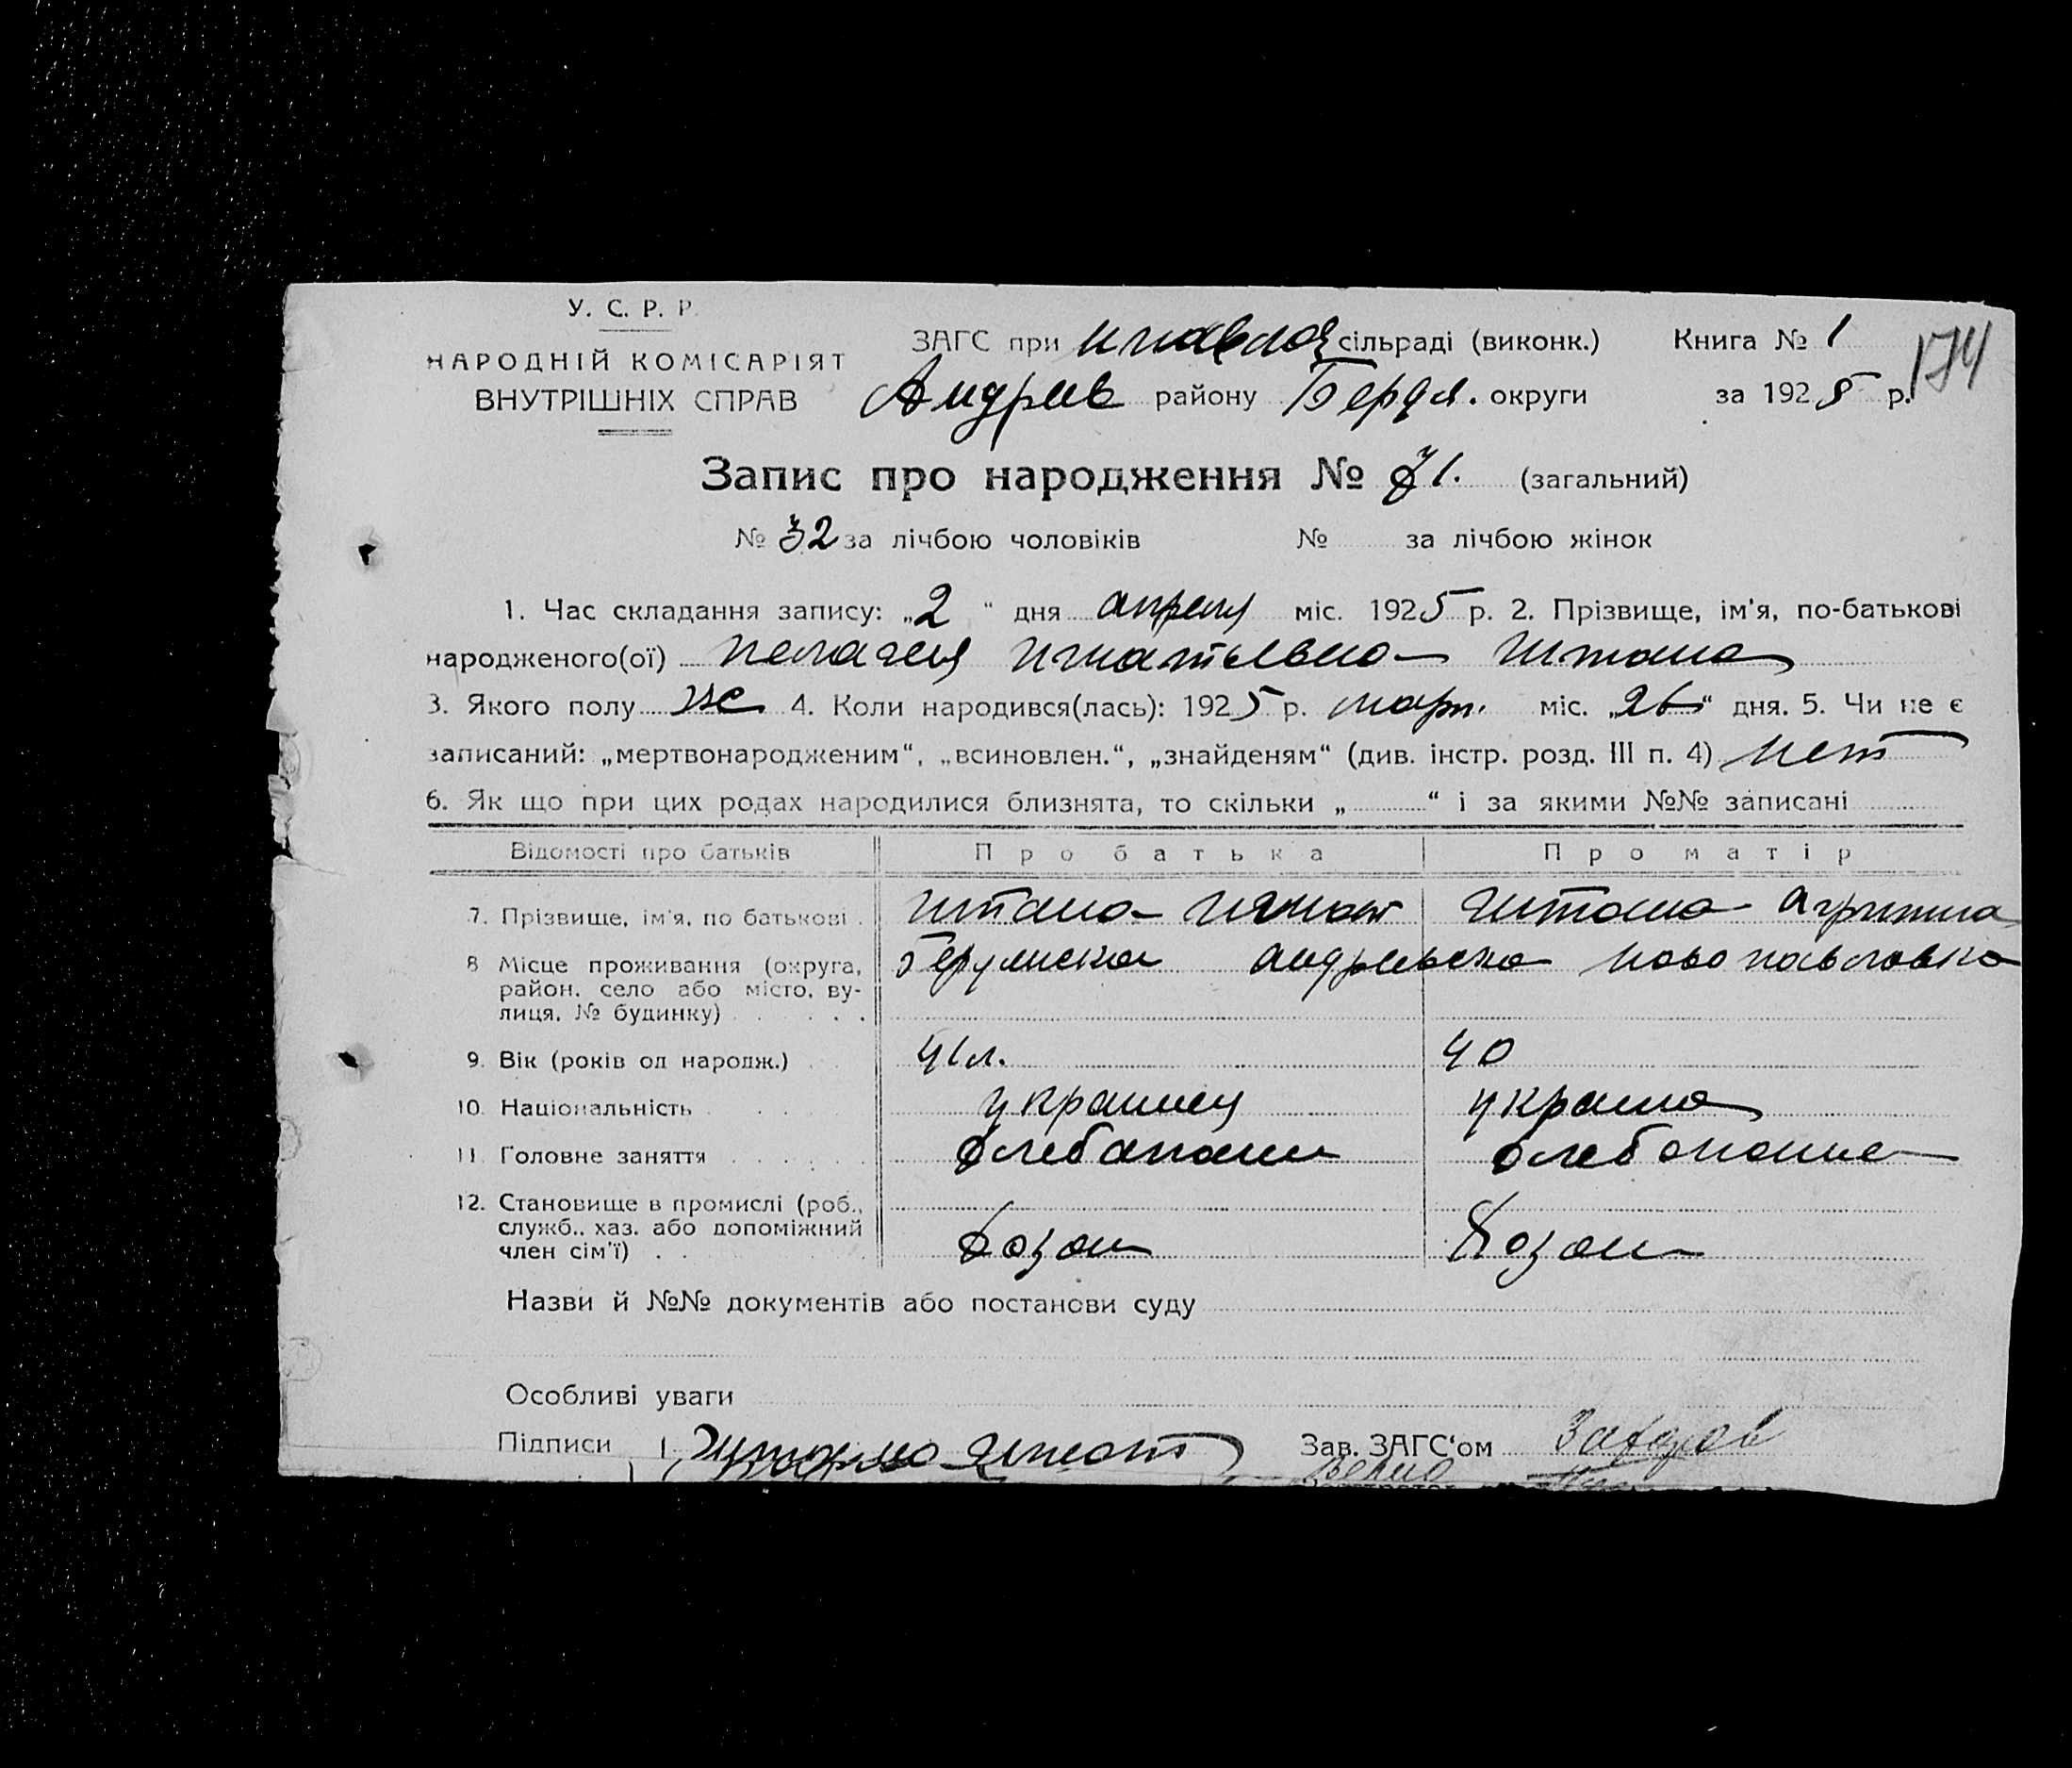 У. С. Р. Р.
НАРОДНІЙ КОМІСАРІЯТ
ВНУТРІШНІХ СПРАВ
ЗАГС при сільраді (виконк.) Книга № 1
174
Андрив району Бердя. округи за 1925 р.
Запис про народження № 71. (загальний)
№ 32 за лічбою чоловіків № за лічбою жінок
1. Час складання запису: „2“ дня апреля міс. 1925 р. 2. Прізвище, ім'я, по-батькові
народженого(ої) пелагея игнатьевно
3. Якого полу же 4. Коли народився(лась): 1925 р. март. міс. „26“ дня. 5. Чи не є
записаний: „мертвонародженим“, „всиновлен.“, „знайденям“ (див. інстр. розд. III п. 4) нет
6. Як що при цих родах народилися близнята, то скільки „ “ і за якими №№ записані
Відомості про батьків Про батька Про матір
7. Прізвище, ім'я, по батькові
8 Місце проживання (округа,
район, село або місто, ву-
лиця, № будинку)
андрьевска новопавловка
9. Вік (років од народж.) 41 л. 40
10. Національність украинец украина
11. Головне заняття хлебопаш хлебопашие
12. Становище в промислі (роб.,
служб., хаз. або допоміжний
член сім'ї)
хозаи хозаи
Назви й №№ документів або постанови суду
Особливі уваги
Підписи Зав. ЗАГС'ом
верно